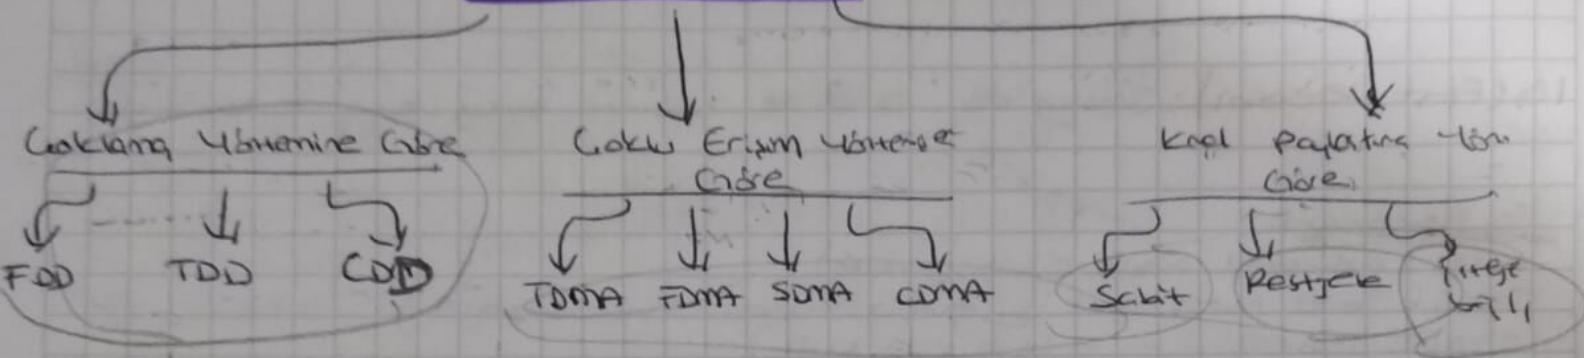 Çoklama Yöntemine Göre
FDD TDD CDD
Çoklu Erişim Yöntemine
Göre
TDMA FDMA SDMA CDMA
Kanal Paylaştırma Yön.
Göre
Sabit Rastgele İsteğe
bağlı